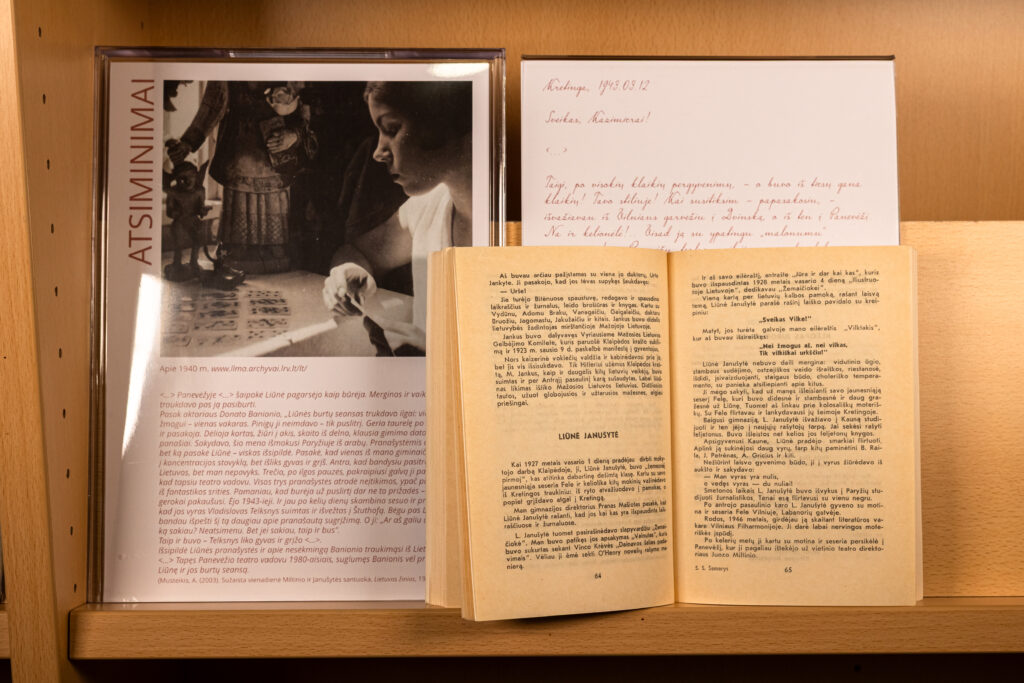 ATSIMINIMAI
Apie 1940 m. www.llma.archyvai.lrv.lt/lt/
<...> Panevėžyje <...> šaipokė Liūnė pagarsėjo kaip būrėja. Merginos ir vaik
traukdavo pas ją pasiburti.
Pasak aktoriaus Donato Banionio, „Liūnės burtų seansas trukdavo ilgai: vi
žmogui – vienas vakaras. Pinigų ji neimdavo – tik puslitrį. Geria taurelę po
ir pasakoja. Dėlioja kortas, žiūri į akis, skaito iš delno, klausia gimimo dato
panašiai. Sakydavo, šio meno išmokusi Paryžiuje iš arabų. Pranašystėmis
bet ką pasakė Liūnė – viskas išsipildė. Pasakė, kad vienas iš mano giminaič
į koncentracijos stovyklą, bet išliks gyvas ir grįš. Antra, kad bandysiu pasitr
Lietuvos, bet man nepavyks. Trečia, po ilgos pauzės, pakraipiusi galvą ji pa
kad tapsiu teatro vadovu. Visos trys pranašystės atrodė neįtikimos, ypač p
iš fantastikos srities. Pamaniau, kad būrėja už puslitrį dar ne to prižadės –
gerokai pakaušusi. Ėjo 1943-ieji. Ir jau po kelių dienų skambina sesuo ir p
kad jos vyras Vladislovas Telksnys suimtas ir išvežtas į Štuthofą. Bėgu pas L
bandau išpešti šį tą daugiau apie pranašautą sugrįžimą. O ji: „Ar aš galiu
ką sakiau? Neatsimenu. Bet jei sakiau, taip ir bus".
Taip ir buvo – Telksnys liko gyvas ir grįžo <...>.
Išsipildė Liūnės pranašystės ir apie nesėkmingą Banionio traukimąsi iš Liet
<...> Tapęs Panevėžio teatro vadovu 1980-aisiais, suglumęs Banionis vėl pr
Liūnę ir jos burtų seansą.
(Musteikis, A. (2003). Sužaista vienadienė Miltinio ir Janušytės santuoka, Lietuvos žinios, 19
Kretinga, 1943.03.12
Sveikas, Kazimierai!
<...>
Taigi, po visokių klaikių pergyvenimų, – o buvo iš tiesų gana
klaikių! Tavo stiliuje! Kai susitiksim – papasakosiu, –
išvažiavau iš Vilniaus garvežiu į Dvinską, o iš ten į Panevėžį.
Na ir kelionė!.. Bisąd ja su ypatingu „malonumu"
Aš buvau arčiau pažįstamas su viena jo dukterų, Urte
Jankyte. Ji pasakojo, kad jos tėvas supykęs šaukdavęs:
— Urše!
Jis turėjo Bitėnuose spaustuvę, redagavo ir spausdino
laikraščius ir žurnalus, leido brošiūras ir knygas. Kartu su
Vydūnu, Adomu Braku, Vanagaičiu, Gaigalaičiu, daktaru
Bruožiu, Jagomastu, Jakužaičiu ir kitais, Jankus buvo didelis
lietuvybės žadintojas mirštančioje Mažojoje Lietuvoje.
Jankus buvo dalyvavęs Vyriausiame Mažosios Lietuvos
Gelbėjimo Komitete, kuris paruošė Klaipėdos krašto sukili-
mą ir 1923 m. sausio 9 d. paskelbė manifestą į gyventojus.
Nors kaizerinė vokiečių valdžia ir kabinėdavos prie jo,
bet jis vis išsisukdavo. Tik Hitleriui užėmus Klaipėdos kraš-
tą, M. Jankus, kaip ir daugelis kitų lietuvių veikėjų, buvo
suimtas ir per Antrąjį pasaulinį karą sušaudytas. Labai liūd-
nas likimas ištiko Mažosios Lietuvos lietuvius. Didžiosios
tautos, užuot globojusios ir užtarusios mažesnes, elgėsi
priešingai.
LIŪNĖ JANUŠYTĖ
Kai 1927 metais vasario 1 dieną pradėjau dirbti moky-
tojo darbą Klaipėdoje, ji, Liūnė Janušytė, buvo „žemoinė
pirmoj", kas atitinka dabartinę dešimtą klasę. Kartu su savo
jaunesniąja seserim Fele ir keliolika kitų mokinių važinėdavo
iš Kretingos traukiniu: iš ryto atvažiuodavo į pamokas, o
popiet grįždavo atgal į Kretingą.
Man gimnazijos direktorius Pranas Mašiotas pasakė, kad
Liūnė Janušytė rašanti, kad jos kai kas yra išspausdinta laik-
raščiuose ir žurnaluose.
L. Janušytė tuomet pasirašinėdavo slapyvardžiu „Žemai-
čiokė". Man buvo patikęs jos apsakymas „Vainutas", kuris
buvo sukurtas sekant Vinco Krėvės „Dainavos šalies padavi-
mais". Vėliau ji ėmė sekti O'Henry novelių rašymo ma-
nierą.
64
Ir aš savo eilėraštį, antrašte „Jūra ir dar kai kas", kuris
buvo išspausdintas 1928 metais vasario 4 dieną „Iliustruo-
toje Lietuvoje", dedikavau „Žemaičiokei".
Vieną kartą per lietuvių kalbos pamoką, rašant laisvą
temą, Liūnė Janušytė parašė rašinį laiško pavidalu su krei-
piniu:
„Sveikas Vilke!"
Matyt, jos turėta galvoje mano eilėraštis „Vilklakis",
kur aš buvau išsireiškęs:
„Nei žmogus aš, nei vilkas,
Tik vilkiškai urkščiu!"
Liūnė Janušytė nebuvo daili mergina: vidutinio ūgio,
stambaus sudėjimo, ostzejiškos veido išraiškos, riestanosė,
išdidi, įsivaizduojanti, staigaus būdo, choleriško tempera-
mento, su panieka atsiliepianti apie kitus.
Ji mėgo sakyti, kad už manęs išleisianti savo jaunesniąją
seserį Felę, kuri buvo didesnė ir stambesnė ir daug gra-
žesnė už Liūnę. Tuomet aš linkau prie kolosališkų moteriš-
kių. Su Fele flirtavau ir lankydavausi jų šeimoje Kretingoje.
Baigusi gimnaziją, L. Janušytė išvažiavo į Kauną studi-
juoti ir ten įėjo į naujųjų rašytojų tarpą. Jai sekėsi rašyti
feljetonus. Buvo išleistos net kelios jos feljetonų knygos.
Apsigyvenusi Kaune, Liūnė pradėjo smarkiai flirtuoti.
Aplink ją sukinėjosi daug vyrų, tarp kitų paminėtini B. Rai-
la, J. Petrėnas, A. Gricius ir kiti.
Nežiūrint laisvo gyvenimo būdo, ji į vyrus žiūrėdavo iš
aukšto ir sakydavo:
— Man vyras yra nulis,
o vedęs vyras — du nuliai!
Smetonos laikais L. Janušytė buvo išvykus į Paryžių stu-
dijuoti žurnalistikos. Tenai esą flirtavusi su vienu negru.
Po antrojo pasaulinio karo L. Janušytė gyveno su moti-
na ir seseria Fele Vilniuje, Labanorų gatvėje.
Rodos, 1946 metais, girdėjau ją skaitant literatūros va-
kare Vilniaus Filharmonijoje. Ji darė labai nervingos mote-
riškės įspūdį.
Po kelerių metų ji kartu su motina ir seseria persikėlė į
Panevėžį, kur ji pagaliau ištekėjo už vietinio teatro direkto-
riaus Juozo Miltinio.
S. S. Senorys
65